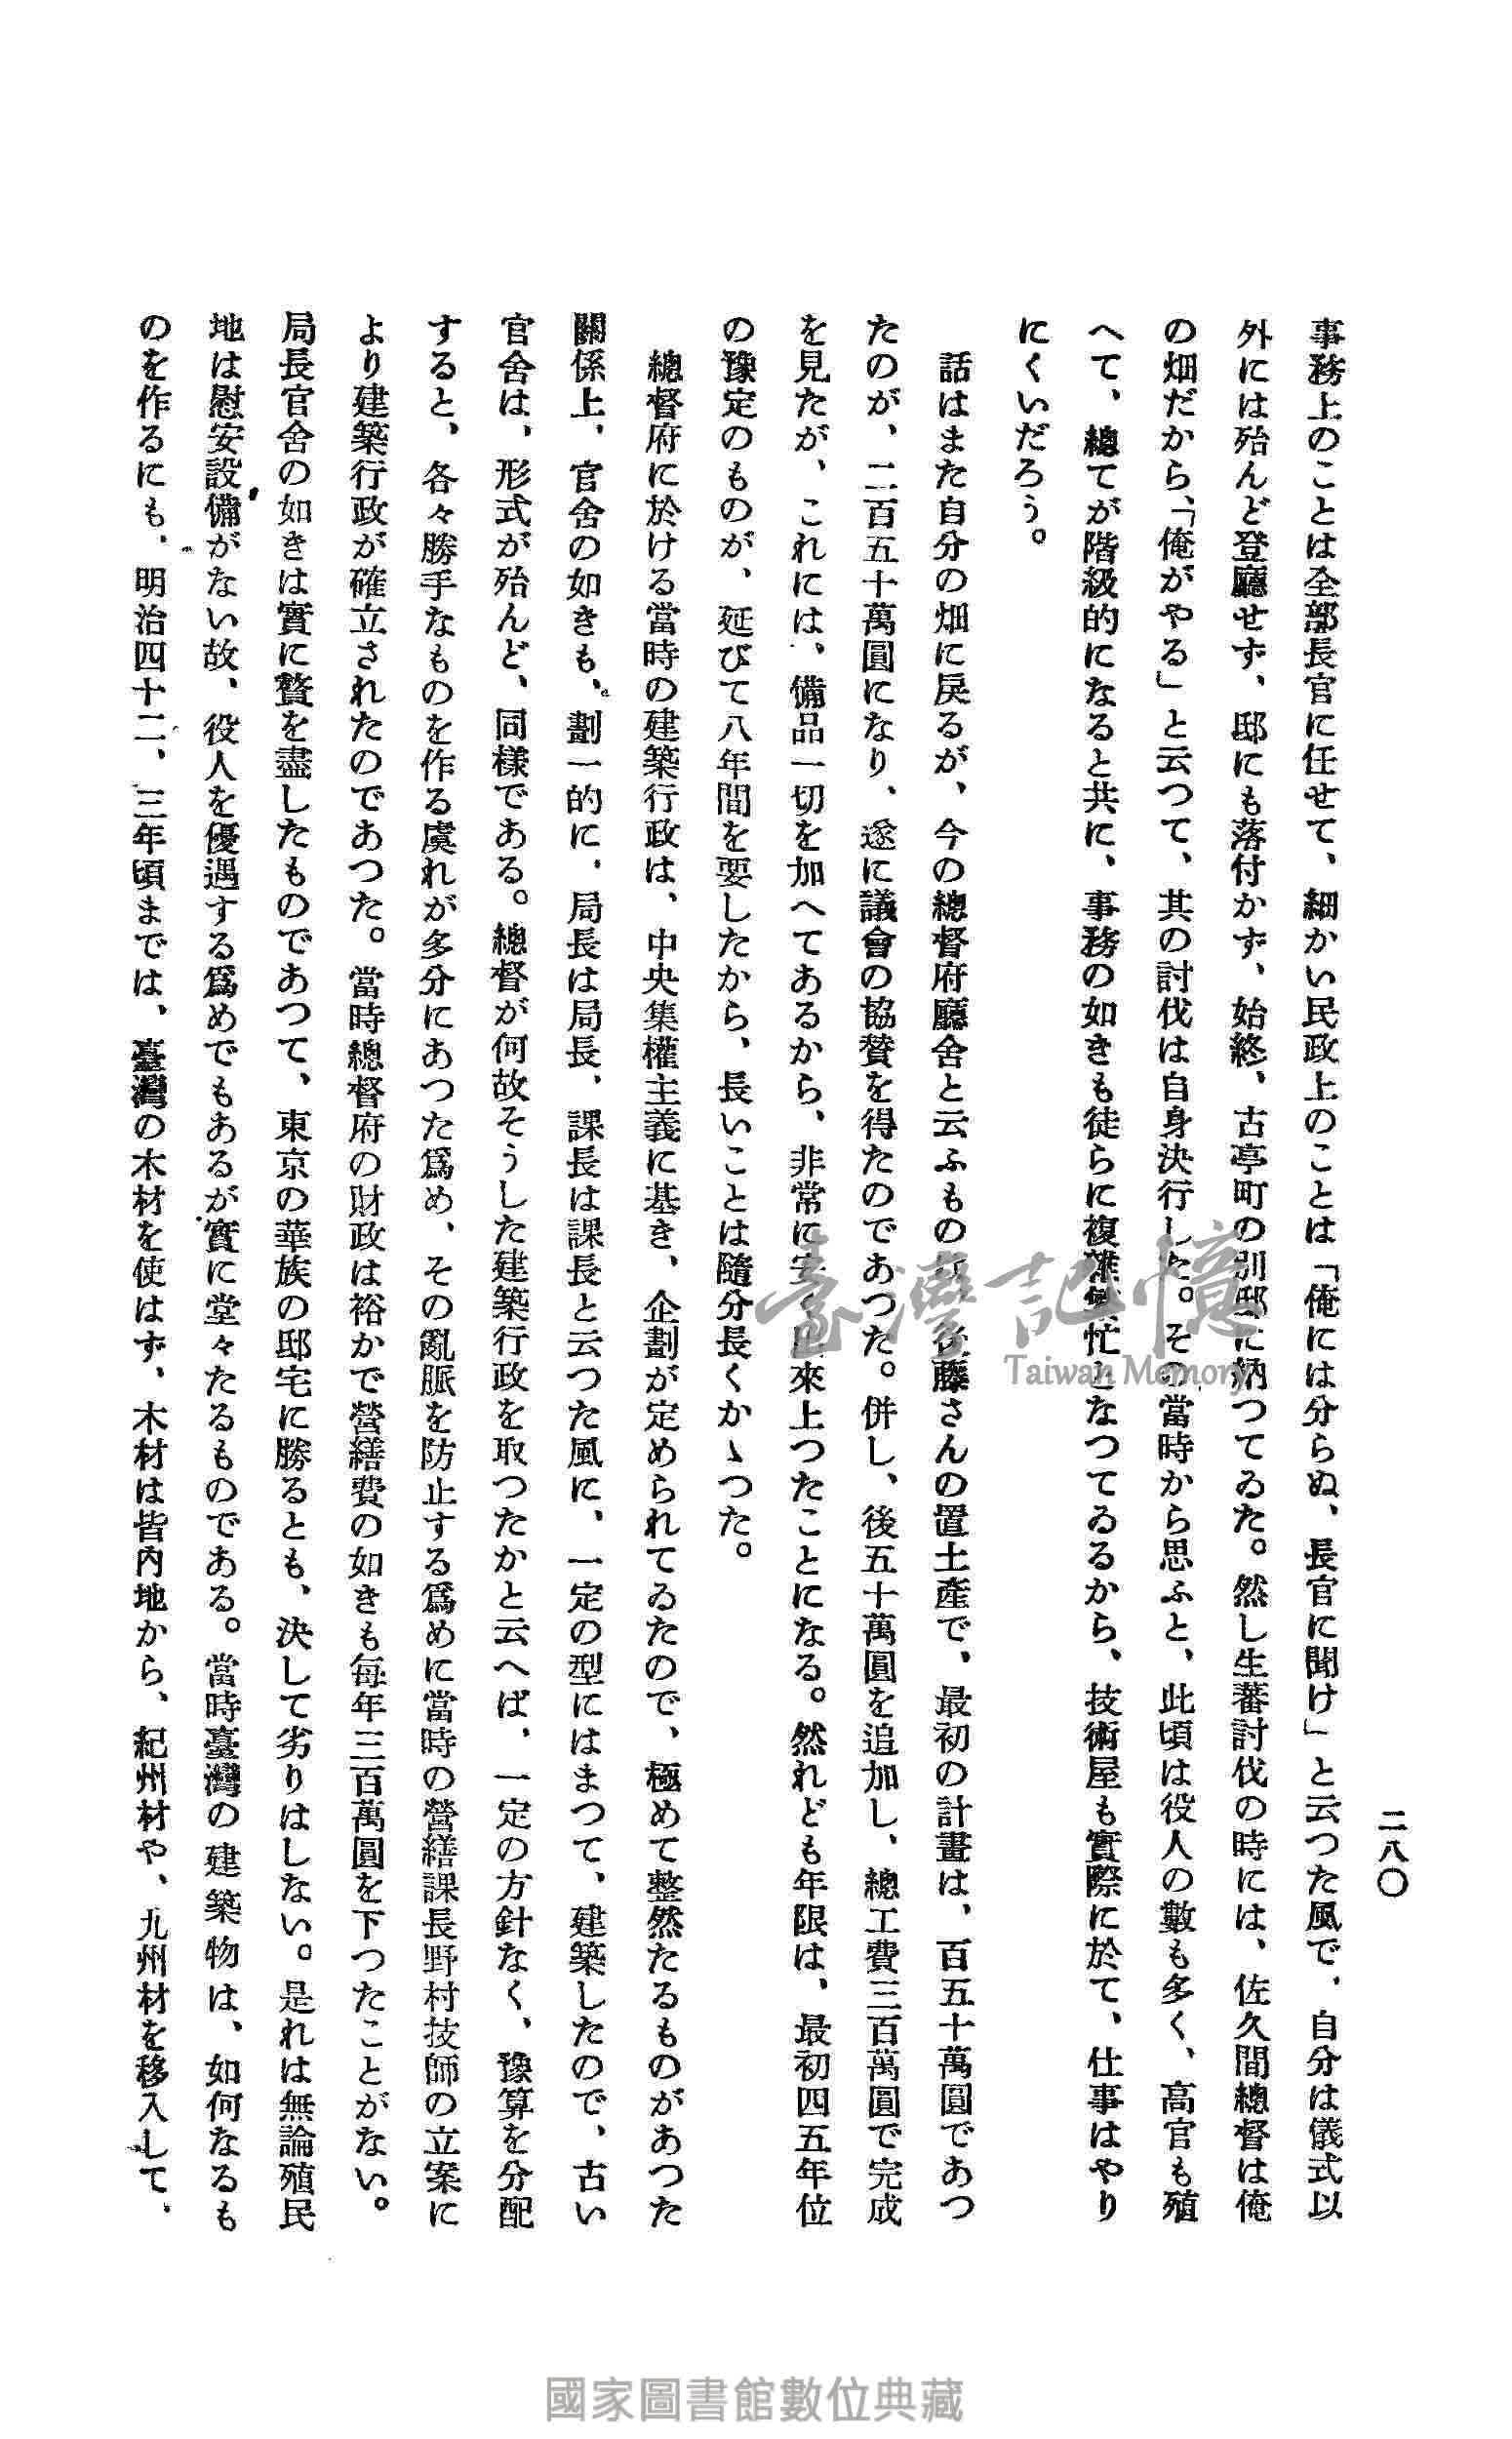 二八〇
事務上のことは全部長官に任せて、細かい民政上のことは「俺には分らぬ、長官に聞け」と云つた風で、自分は儀式以
外には殆んど登廳せず、邸にも落付かず、始終、古亭町の別邸に納つてゐた。然し生蕃討伐の時には、佐久間總督は俺
の畑だから、「俺がやる」と云つて、其の討伐は自身決行した。その當時から思ふと、此頃は役人の數も多く、高官も殖
へて、總てが階級的になると共に、事務の如きも徒らに複雜繁忙となつてゐるから、技術屋も實際に於て、仕事はやり
にくいだろう。
話はまた自分の畑に戻るが、今の總督府廳舍と云ふものは、後藤さんの置土産で、最初の計畫は、百五十萬圓であつ
たのが、二百五十萬圓になり、遂に議會の協贊を得たのであつた。併し、後五十萬圓を追加し、總工費三百萬圓で完成
を見たが、これには、備品一切を加へてあるから、非常に安く出來上つたことになる。然れども年限は、最初四五年位
の豫定のものが、延びて八年間を要したから、長いことは隨分長くかゝつた。
總督府に於ける當時の建築行政は、中央集權主義に基き、企劃が定められてゐたので、極めて整然たるものがあつた
關係上、官舍の如きも、劃一的に、局長は局長、課長は課長と云つた風に、一定の型にはまつて、建築したので、古い
官舍は、形式が殆んど、同樣である。總督が何故そうした建築行政を取つたかと云へば、一定の方針なく、豫算を分配
すると、各々勝手なものを作る虞れが多分にあつた爲め、その亂脈を防止する爲めに當時の營繕課長野村技師の立案に
より建築行政が確立されたのであつた。當時總督府の財政は裕かで營繕費の如きも每年三百萬圓を下つたことがない。
局長官舍の如きは實に贅を盡したものであつて、東京の華族の邸宅に勝るとも、決して劣りはしない。是れは無論殖民
地は慰安設備がない故、役人を優遇する爲めでもあるが實に堂々たるものである。當時臺灣の建築物は、如何なるも
のを作るにも、明治四十二、三年頃までは、臺灣の木材を使はず、木材は皆內地から、紀州材や、九州材を移入して、
臺灣記憶
Taiwan Memory
國家圖書館數位典藏